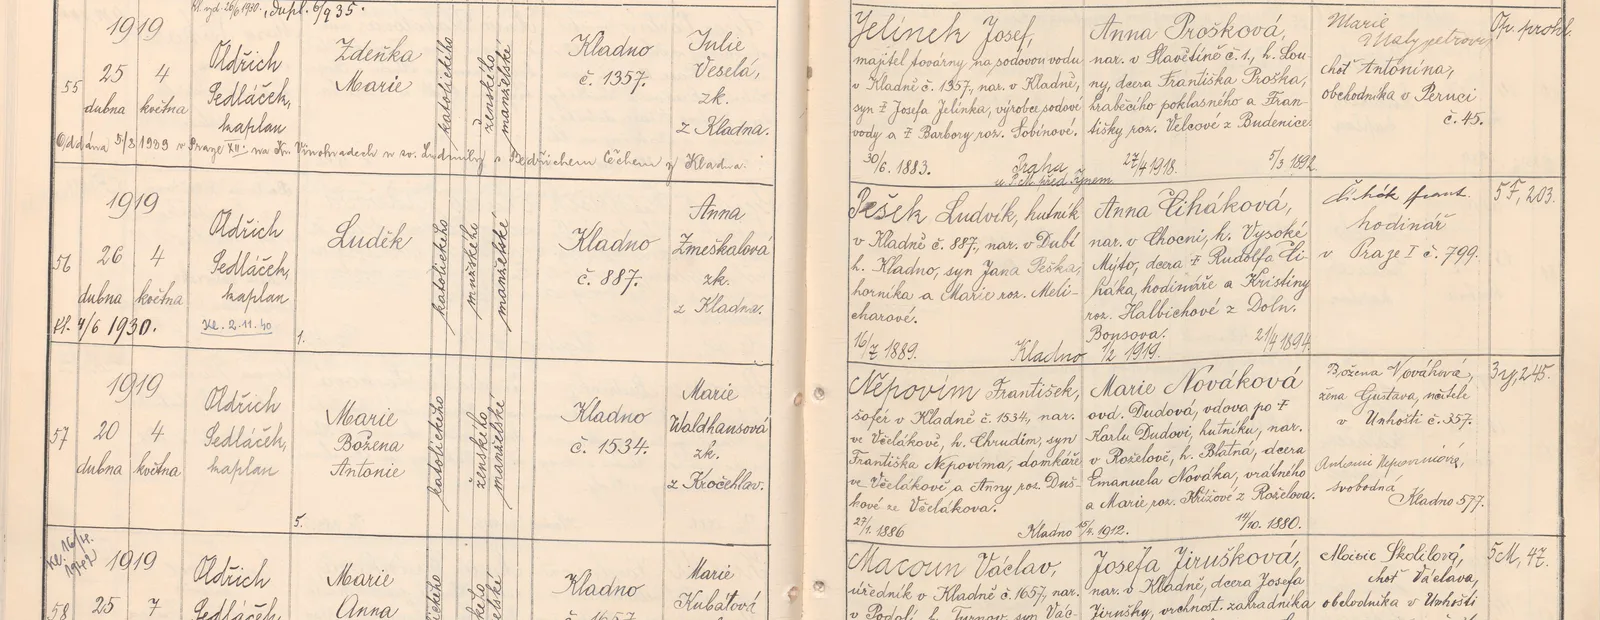 Kl. vyd. 26/6 1930., dupl. 6/9 35.
1919
55
25 4
dubna května
Oldřich
Sedláček,
kaplan
Zdeňka
Marie
katolického
ženského
manželské
Kladno
č. 1357.
Julie
Veselá,
zk.
z Kladna.
Oddána 5/8 1939 v Praze XII. na Kr. Vinohradech u sv. Ludmily s Bedřichem Čechem z Kladna.
Jelínek Josef,
majitel továrny na sodovou vodu
v Kladně č. 1357, nar. v Kladně,
syn † Josefa Jelínka, výrobce sodové
vody a † Barbory roz. Sobínové.
30/6. 1883.
Praha
27/4 1918.
Anna Prošková,
nar. v Slavětíně č. 1., h. Lou-
ny, dcera Františka Proška,
hraběcího poklasného a Fran-
tišky roz. Velcové z Budenice
5/3 1892.
Marie
choť Antonína,
obchodníka v Peruci
č. 45.
1919
56
26 4
dubna května
Kl. 4/6 1930.
Oldřich
Sedláček,
kaplan
Kl. 2.11.40
Luděk
1.
katolického
mužského
manželské
Kladno
č. 887.
Anna
Zmeškalová
zk.
z Kladna.
Pešek Ludvík, hutník
v Kladně č. 887, nar. v Dubí
h. Kladno, syn Jana Peška,
horníka a Marie roz. Meli-
charové.
16/7 1889.
Kladno 1/2 1919.
Anna Čiháková,
nar. v Chocni, h. Vysoké
Mýto, dcera † Rudolfa Či-
háka, hodináře a Kristiny
roz. Halbichové z Doln.
Bousova.
21/4 1894.
Čihák Frant.
hodinář
v Praze I č. 799.
5 F, 203.
1919
57
20 4
dubna května
Oldřich
Sedláček,
kaplan
Marie
Božena
Antonie
5.
katolického
ženského
manželské
Kladno
č. 1534.
Marie
Waldhansová
zk.
z Kročehlav.
Nepovím František,
šofér v Kladně č. 1534, nar.
ve Včelákově, h. Chrudim, syn
Františka Nepovíma, domkáře
ve Včelákově a Anny roz. Duš-
kové ze Včelákova.
27/1. 1886
Kladno 15/2. 1912.
Marie Nováková
ovd. Dudová, vdova po †
Karlu Dudovi, hutníku, nar.
v Roželově, h. Blatná, dcera
Emanuela Nováka, vrátného
a Marie roz. Křížové z Roželova.
14/10. 1880.
Božena Nováková,
žena Gustava, učitele
v Unhošti č. 357.
Antonie Nepovímová,
svobodná
Kladno 577.
3 y, 245.
Kl. 16/4.
1942
1919
58
25 7
Oldřich
Sedláček,
Marie
Anna
Kladno
č. 1657
Marie
Kubátová
Macoun Václav,
úředník v Kladně č. 1657, nar.
v Podolí, h. Turnov, syn Vác-
Josefa Jirušková,
nar. v Kladně, dcera Josefa
Jirušky, vrchnost. zahradníka
Aloisie Školilová,
choť Václava,
obchodníka v Unhošti
5 M, 47.